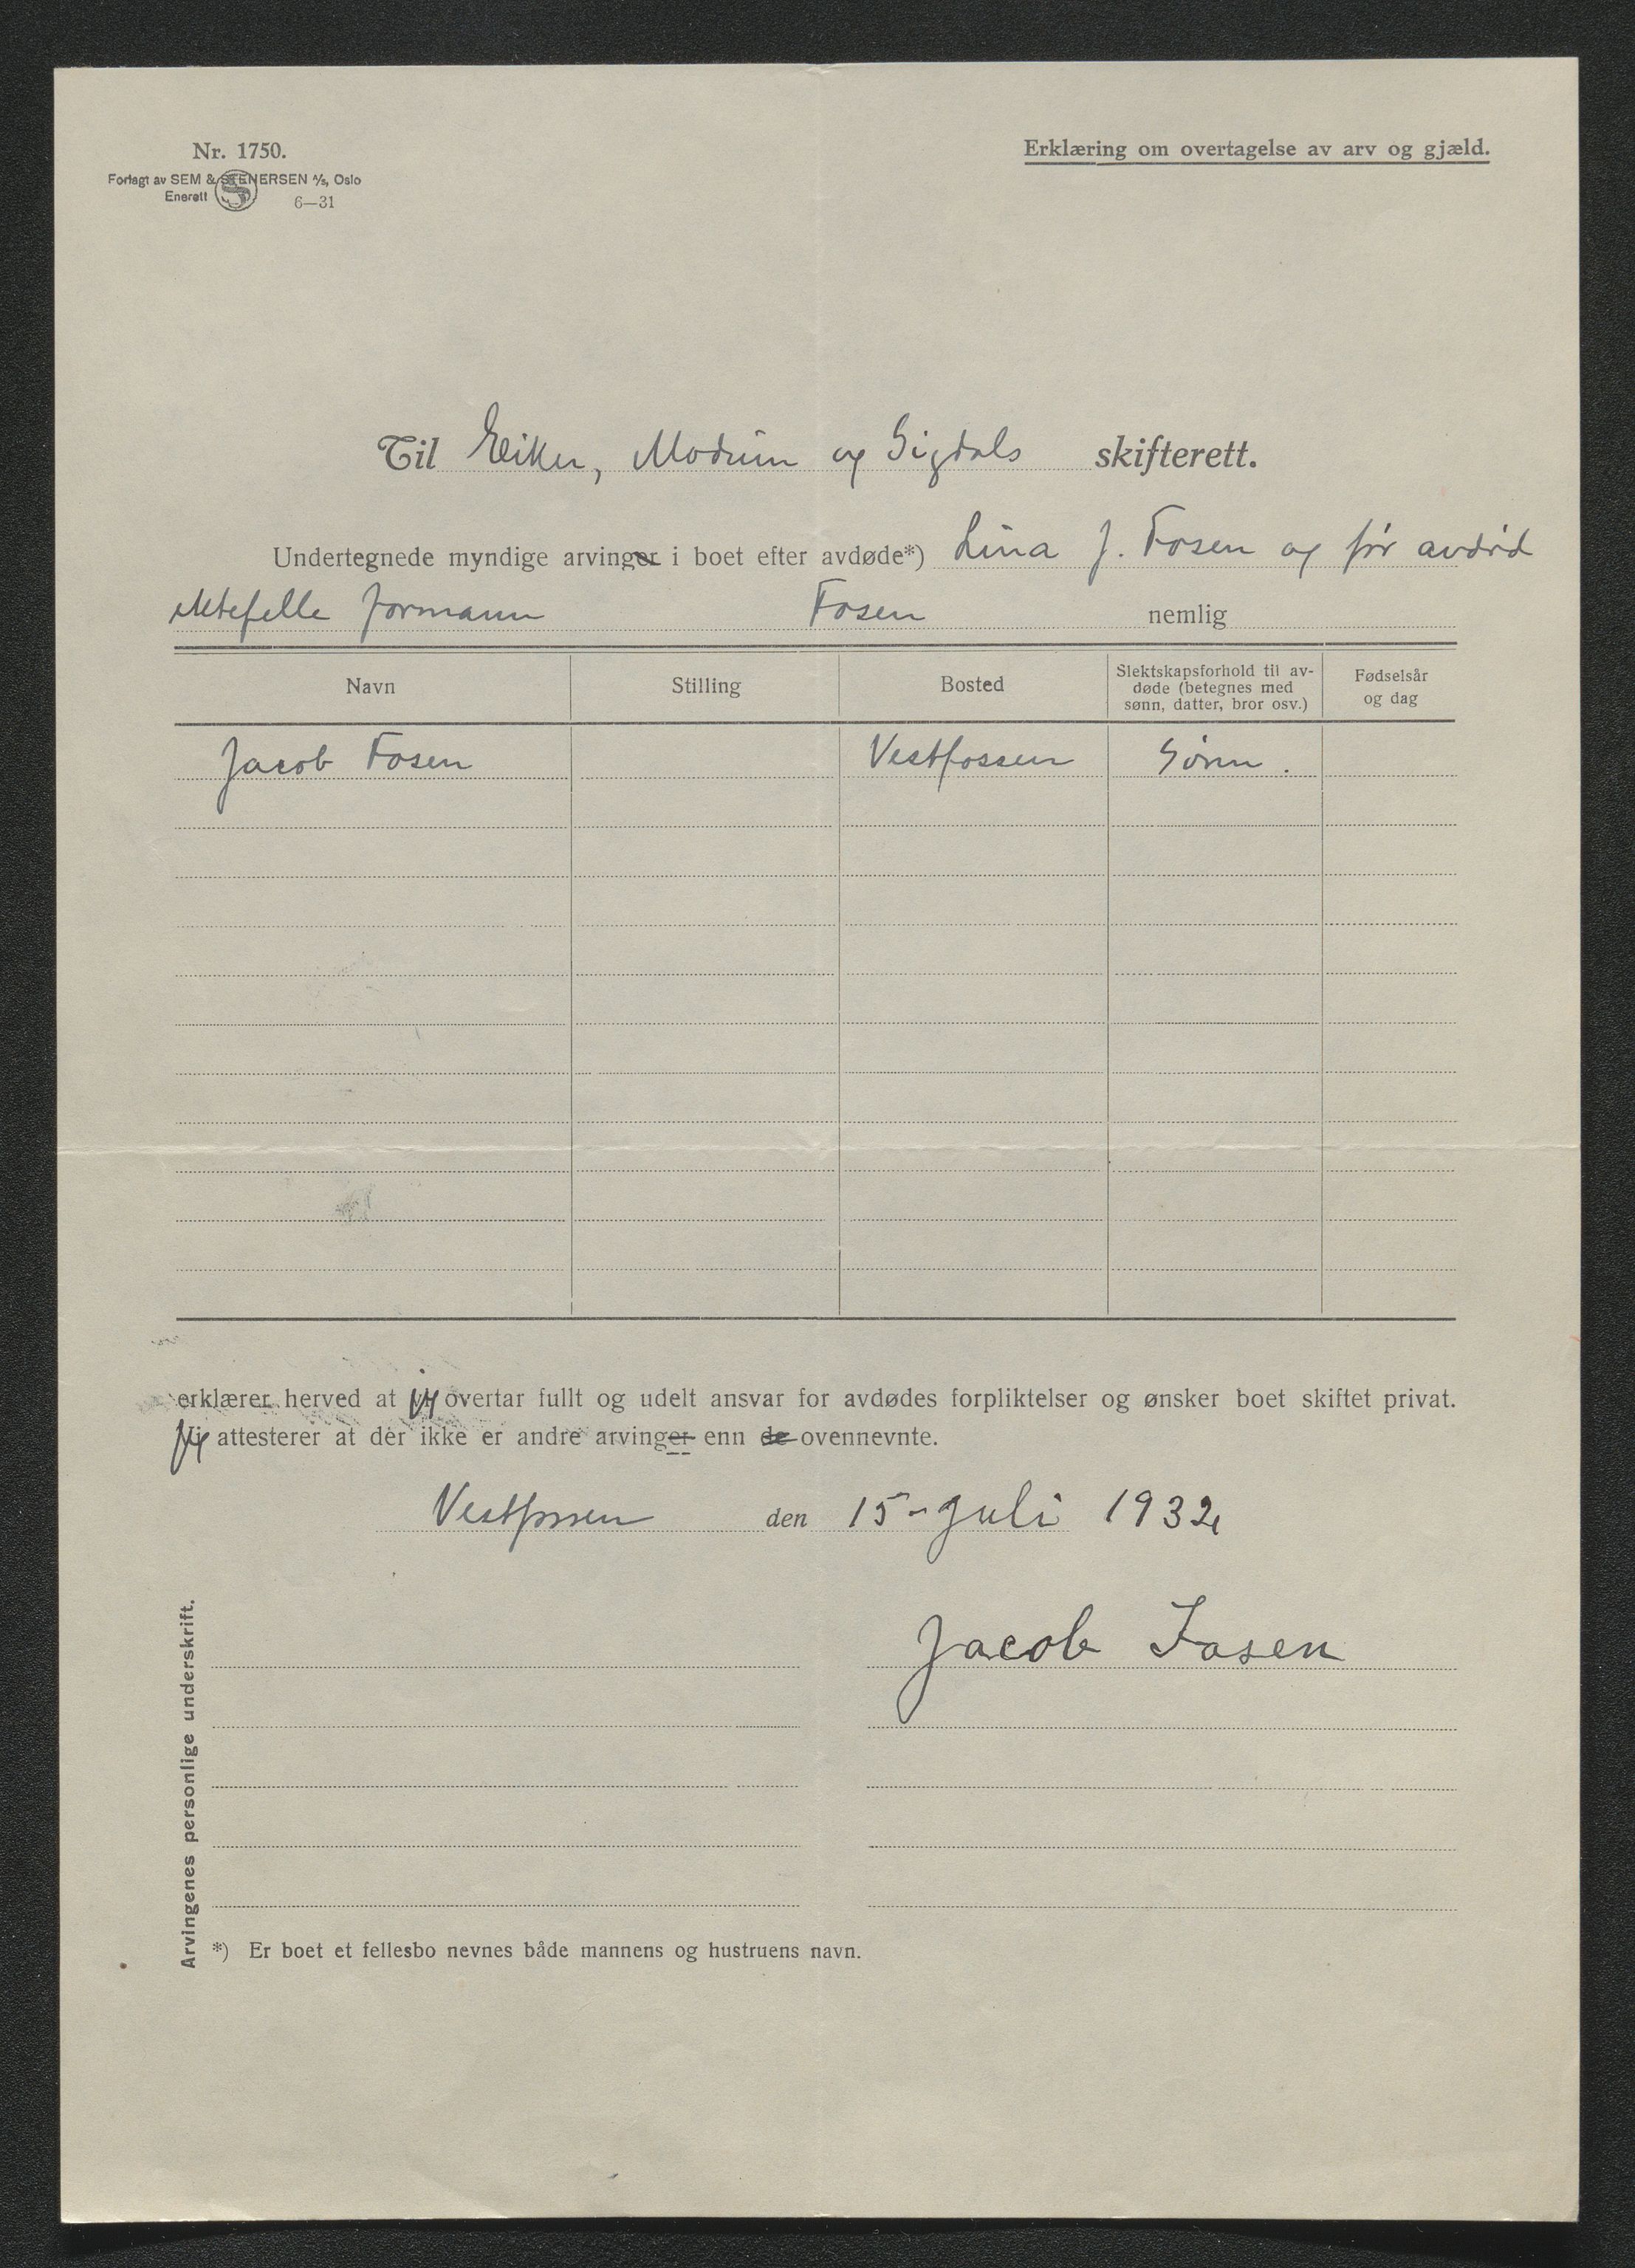 Nr. 1750.
Forlagt av SEM & STENERSEN A/S, Oslo
Enerett 6—31
Erklæring om overtagelse av arv og gjæld.
Til Eiker, Modum og Sigdals skifterett.
Undertegnede myndige arvinger i boet efter avdøde*) Lina J. Fosen og før avdød
ektefelle formann Fosen nemlig
Navn Stilling Bosted Slektskapsforhold til av-
døde (betegnes med
sønn, datter, bror osv.) Fødselsår
og dag
Jacob Fosen Vestfossen Sønn.
erklærer herved at jeg overtar fullt og udelt ansvar for avdødes forpliktelser og ønsker boet skiftet privat.
Jeg attesterer at der ikke er andre arvinger enn de ovennevnte.
Vestfossen den 15-juli 1932
Jacob Fosen
Arvingenes personlige underskrift.
*) Er boet et fellesbo nevnes både mannens og hustruens navn.